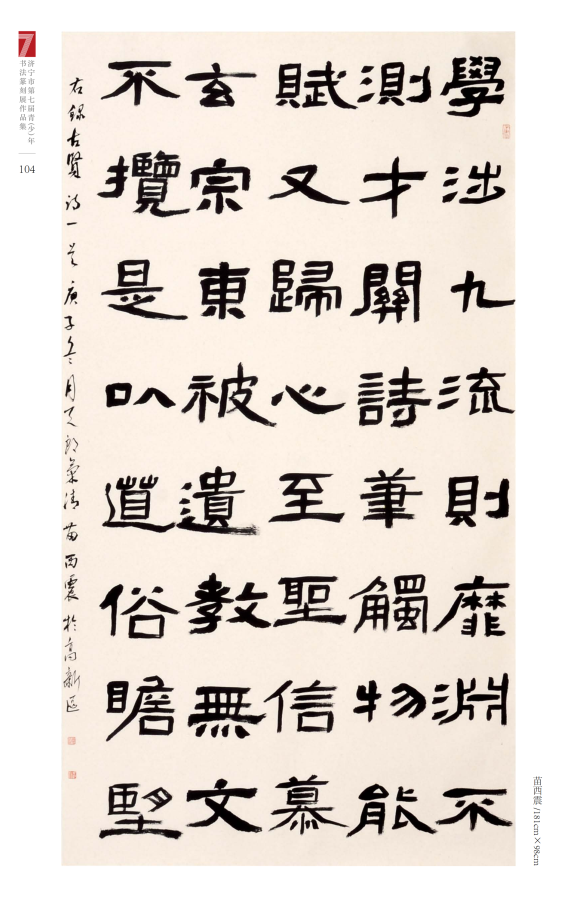 學涉九流則靡淵不
測才關詩筆觸物能
賦又歸心至聖信慕
玄宗東被遺教無文
不攬是以道俗瞻望
右録古賢詩一首庚子冬月天朗氣清苗西震於高新區
7
济宁市第七届青(少)年
书法篆刻展作品集
104
苗西震/181cm×98cm